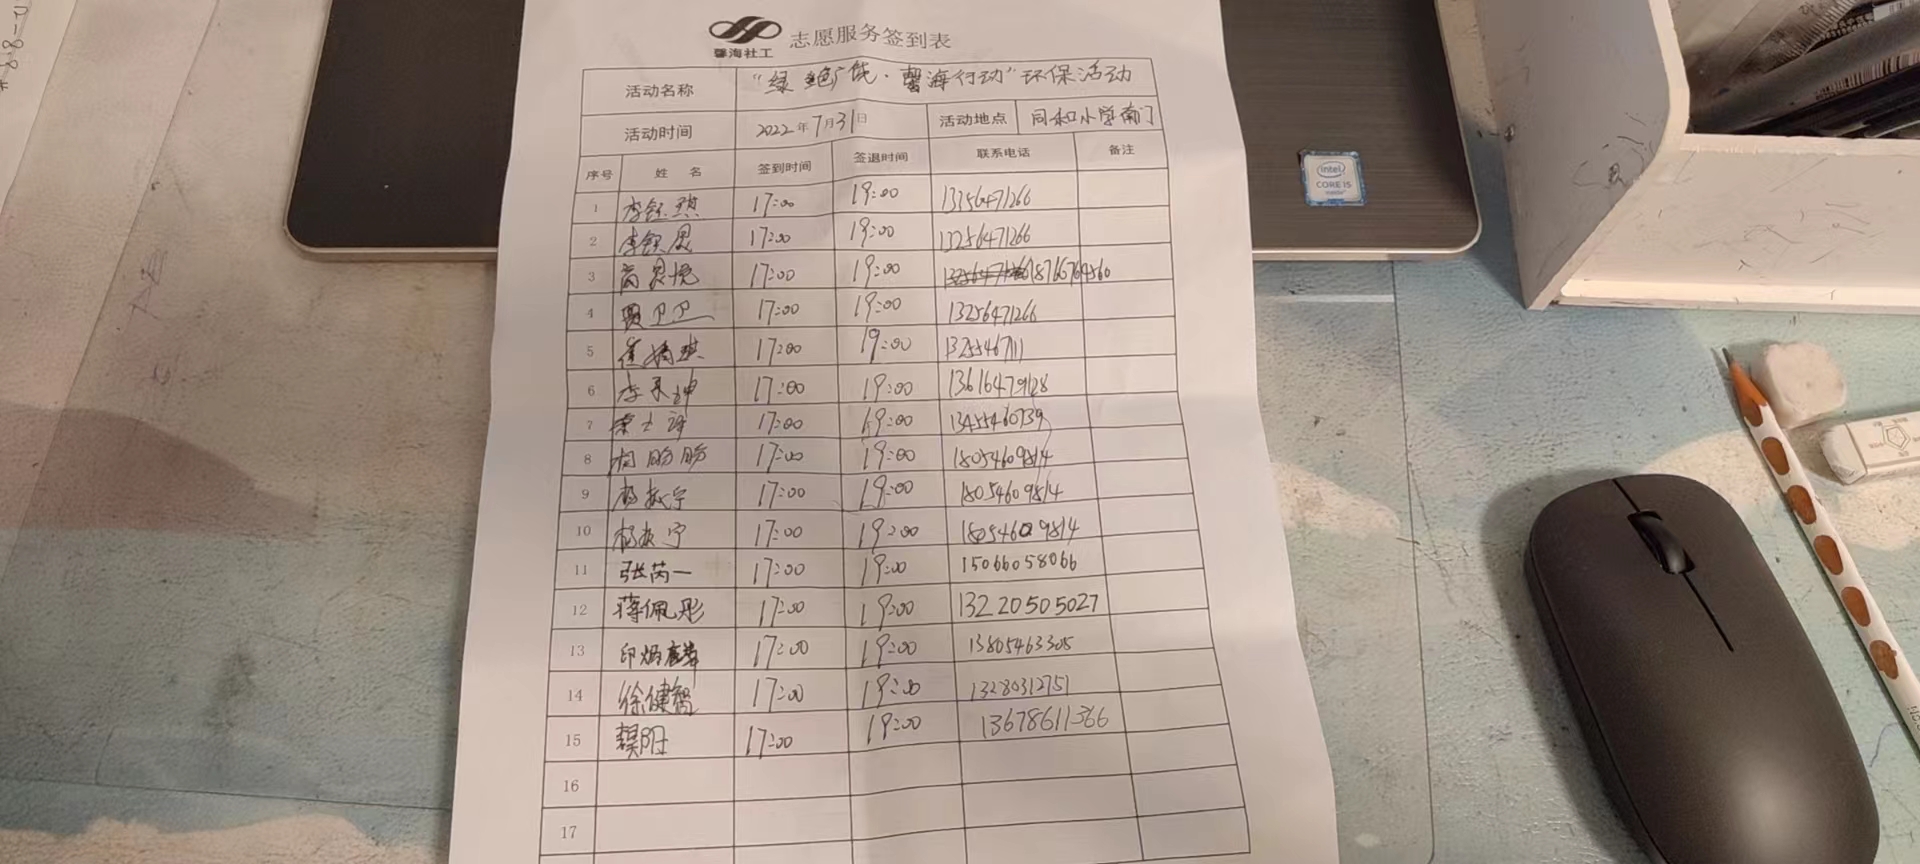 馨海社工 志愿服务签到表
活动名称 "绿色广饶·馨海行动"环保活动
活动时间 2022年7月31日 活动地点 同和小学南门
序号 姓 名 签到时间 签退时间 联系电话 备注
1 李钰琪 17:00 19:00 13256471266
2 李钰昆 17:00 19:00 13256471266
3 17:00 19:00 18766764560
4 贾卫卫 17:00 19:00 13256471266
5 17:00 19:00 1325546711
6 17:00 19:00 13616479128
7 17:00 19:00 13455460739
8 17:00 19:00 18054609814
9 17:00 19:00 18054609814
10 17:00 19:00 18054609814
11 张芮一 17:00 19:00 15066058066
12 蒋佩彤 17:00 19:00 13220505027
13 17:00 19:00 13805463305
14 徐健智 17:00 19:00 13280312751
15 17:00 19:00 13678611366
16
17
intel
CORE i5
inside